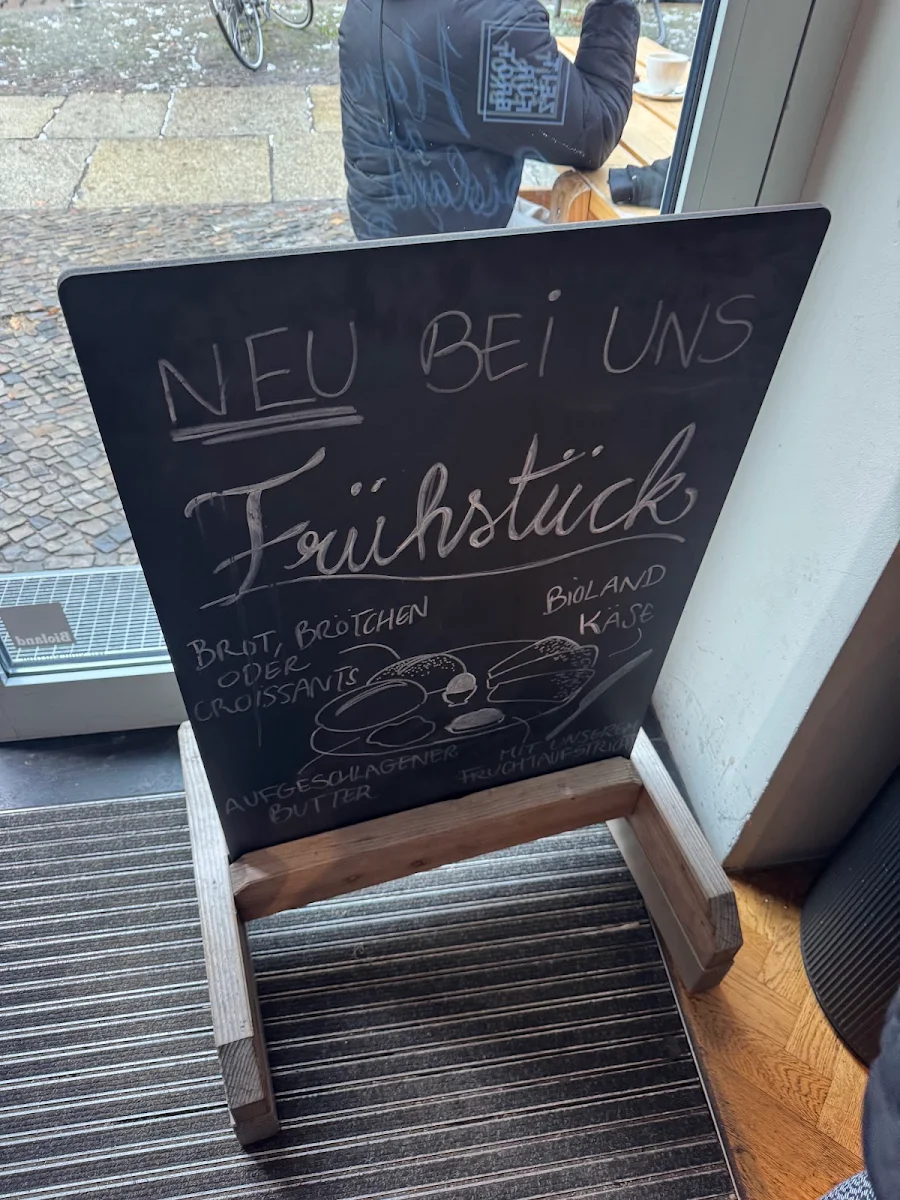 NEU BEI UNS
Frühstück
BROT, BRÖTCHEN
ODER
CROISSANTS
BIOLAND
KÄSE
AUFGESCHLAGENER
BUTTER
MIT UNSEREN
FRUCHTAUFSTRICH
BROT
FÜR
Bioland